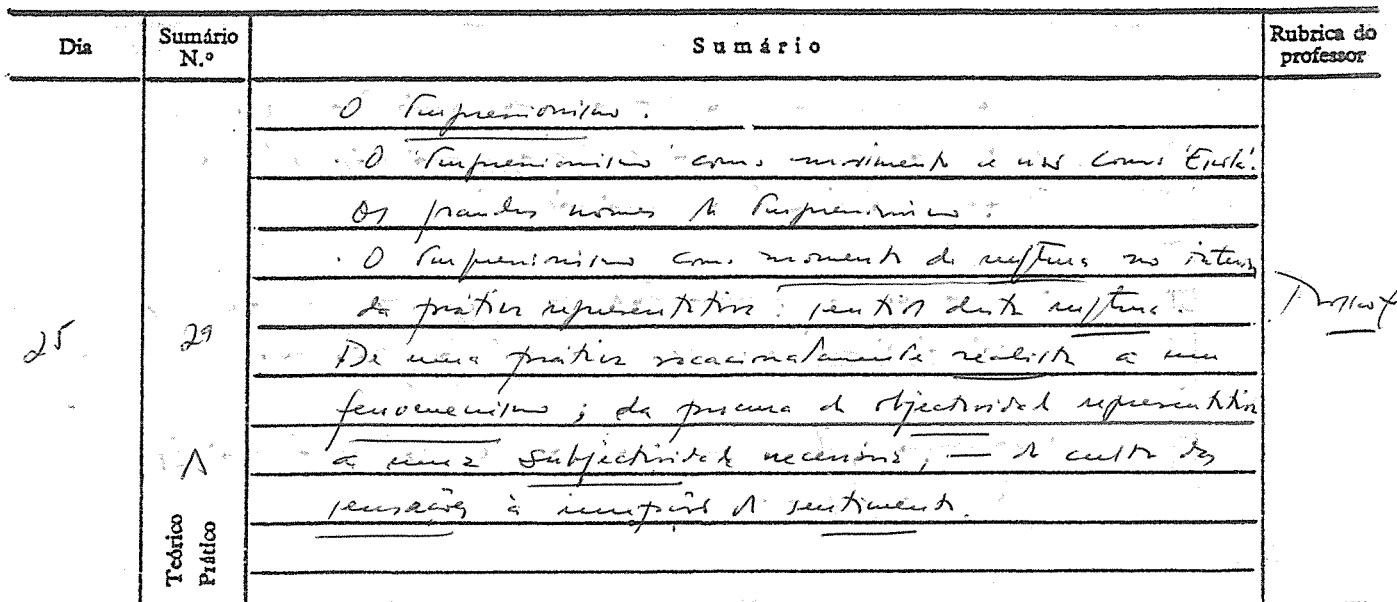 Dia Sumário N.º Sumário Rubrica do professor
O Impressionismo.
. O Impressionismo como movimento e não como 'Escola'.
Os grandes nomes do Impressionismo.
. O Impressionismo como momento de ruptura no interior
da prática representativa: sentido desta ruptura.
25 29
De uma prática vocacionalmente realista a um
fenomenismo; da procura da objectividade representativa
a uma subjectividade necessária, — do culto das
sensações à irrupção do sentimento.
Teórico
Prático